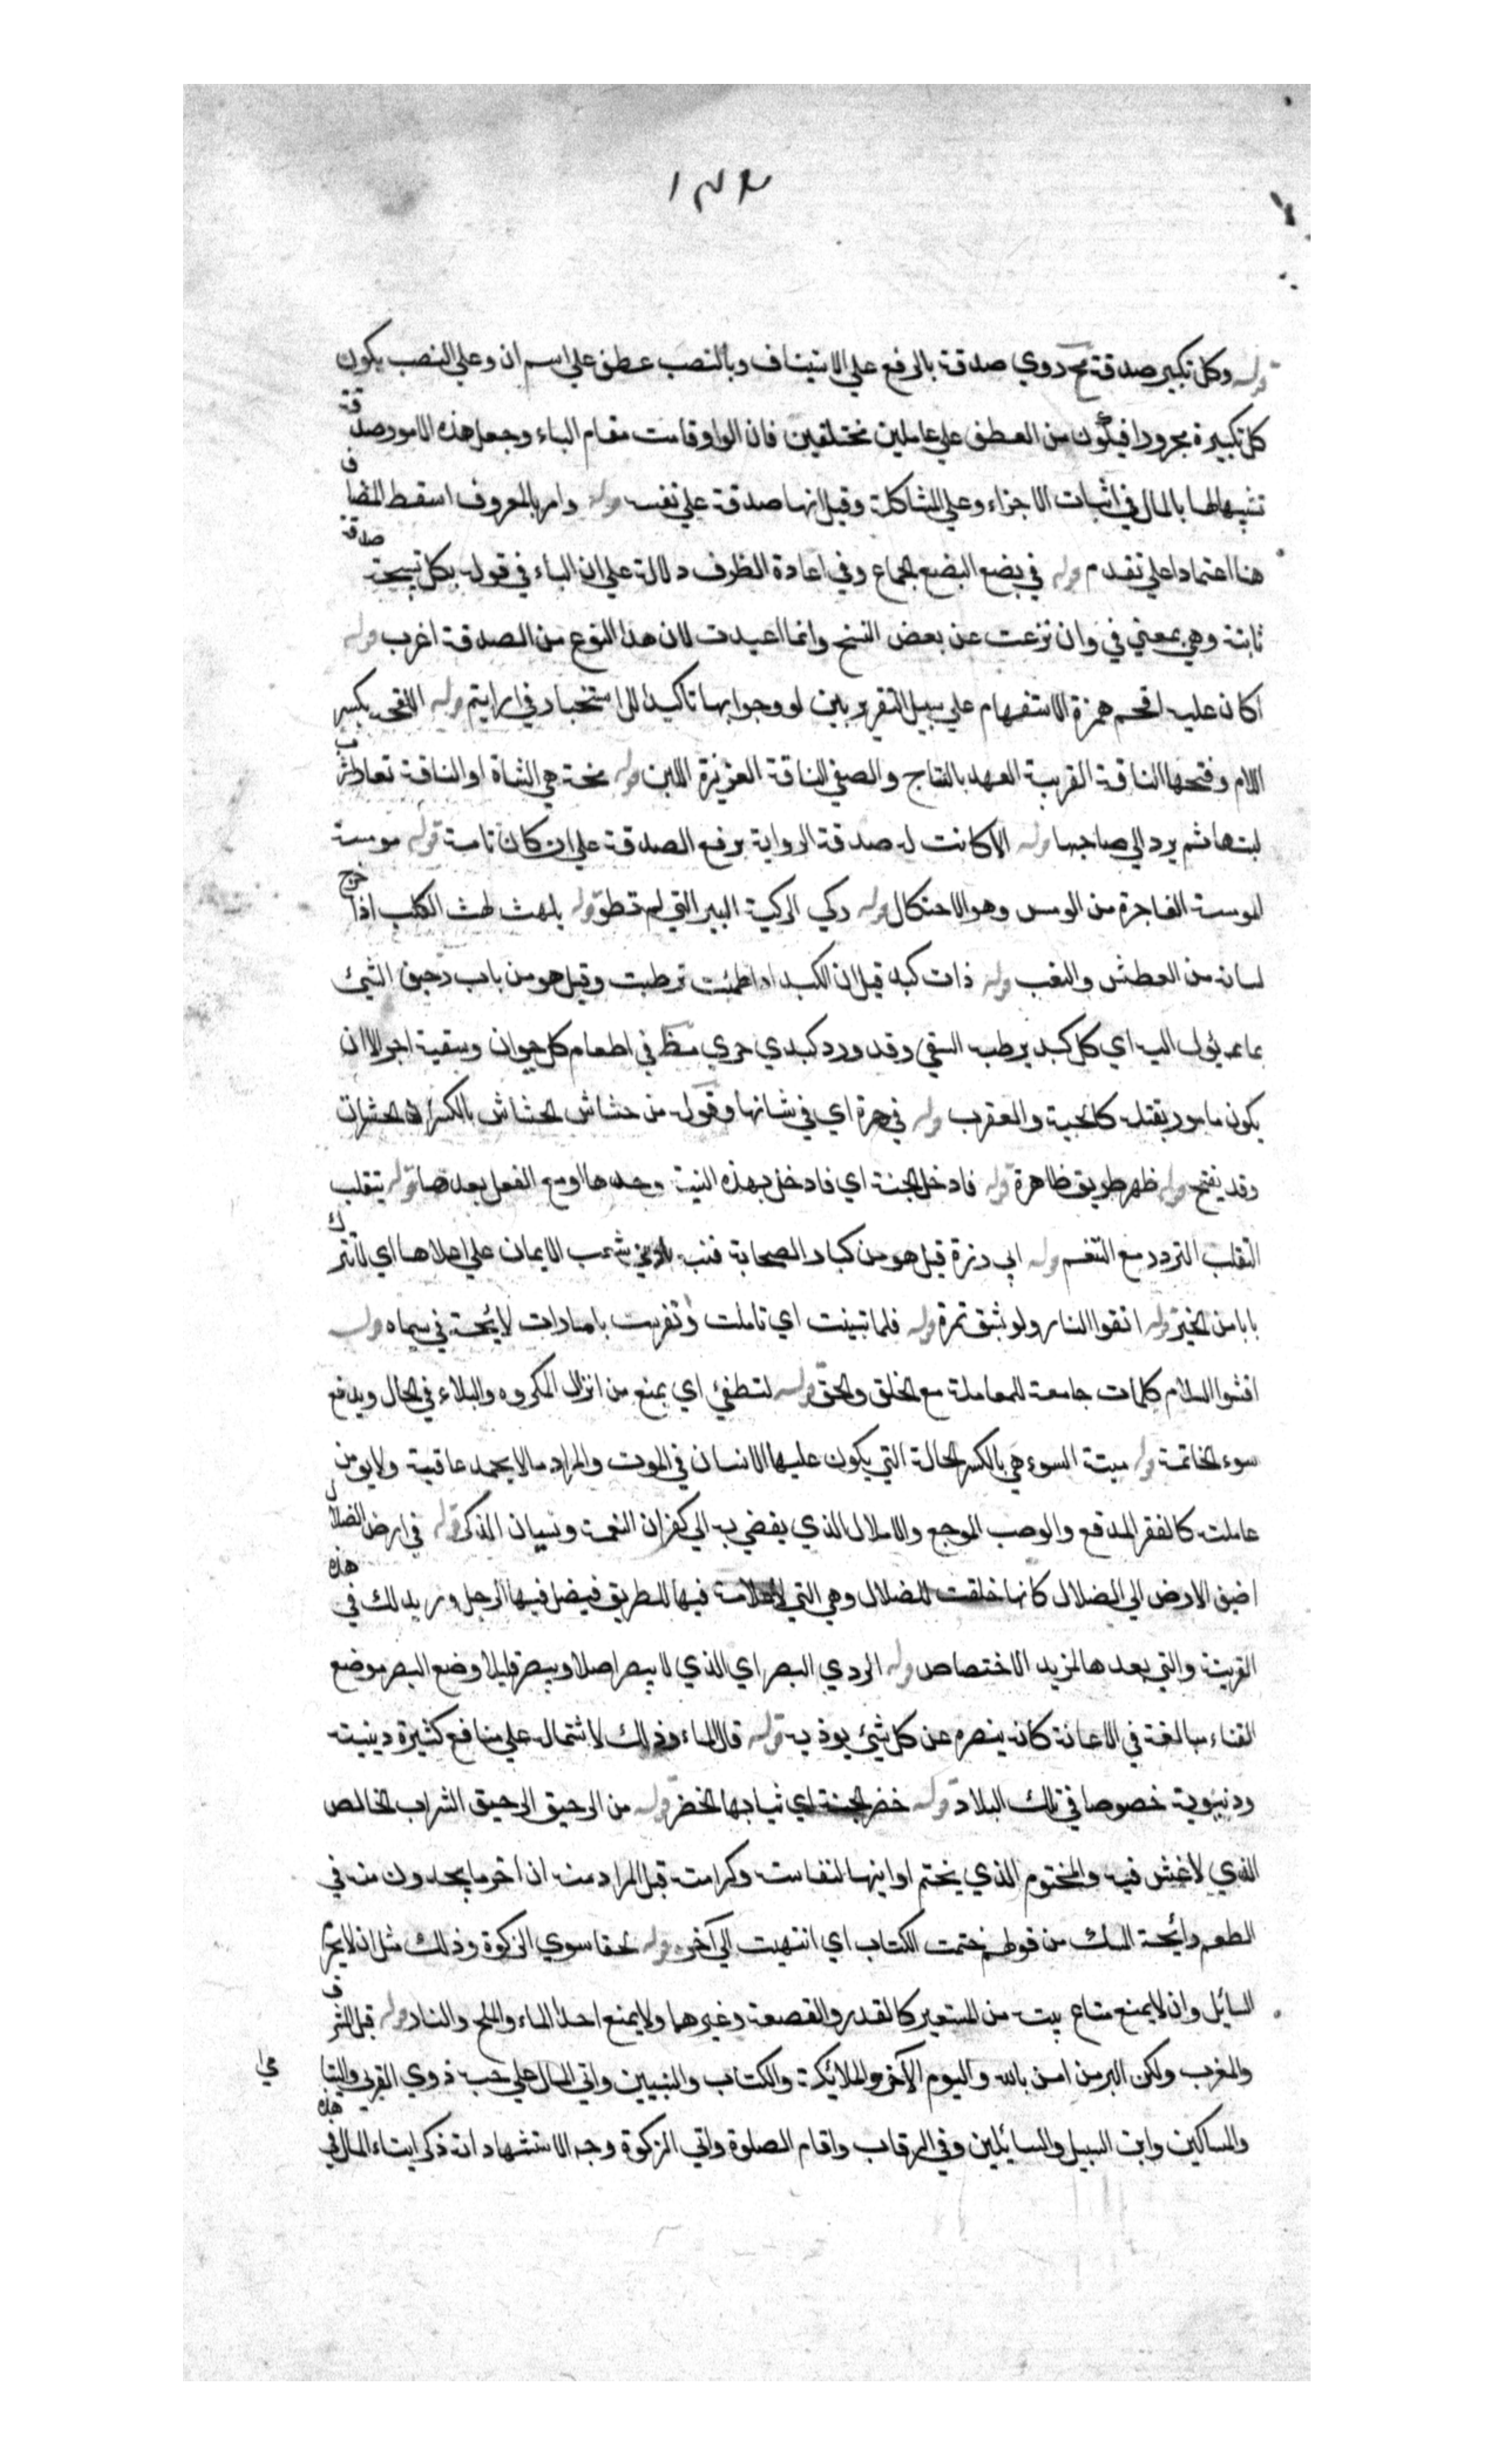 ١٣٤
قوله وكل تكبير صدقة مح روي صدقة بالرفع علي الاستيناف وبالنصب عطف علي اسم ان وعلي النصب يكون
كل تكبيرة مجرورا فيكون من العطف علي عاملين مختلفين فان الواو قامت مقام الباء وجعل هذه الامور صدقة
تشبيها لها بالمال في اثبات الاجزاء وعلي المشاكلة وقيل انها صدقة علي نفسه قوله وامر بالمعروف اسقط المضاف
هنا اعتمادا علي تقدم قوله في بضع البضع الجماع وفي اعادة الظرف دلالة علي ان الباء في قوله بكل تسبيحة صدقة
ثابتة وهي بمعني في وان نزعت عن بعض النسخ وانما اعيدت لان هذا النوع من الصدقة اغرب قوله
اكان عليه اقحم همزة الاستفهام علي سبيل التقرير بين لو وجوابها تاكيدا للاستخبار في ارايتم قوله اللقحة بكسر
اللام وفتحها الناقة القريبة العهد بالنتاج والصفي الناقة الغزيرة اللبن قوله منحة هي الشاة او الناقة تعاطي
لبنها ثم يرد الي صاحبها قوله الا كانت له صدقة الرواية برفع الصدقة علي ان كان تامة قوله مومسة
المومسة الفاجرة من الومس وهو الاحتكاك قوله ركي الركية البير التي لم تطو قوله يلهث لهث الكلب اذا خرج
لسانه من العطش والتعب قوله ذات كبد قيل ان الكبد اذا ظمئت ترطبت وقيل هو من باب وصف الشيئ
بما يؤل اليه اي كل كبد يرطبه السقي وقد ورد كبدي حري مظ في اطعام كل حيوان وسقيه اجر الا ان
يكون مامور بقتله كالحية والعقرب قوله في هرة اي في شانها وقوله من خشاش الخشاش بالكسر الحشرات
وقد يفتح قوله ظهر طريق ظاهرة قوله فادخل الجنة اي فادخل بهذه النية وحدها او مع الفعل بعدها قوله يتقلب
التقلب التردد مع التنعم قوله ابي برزة قيل هو من كبار الصحابة فنبه بادني شعب الايمان علي اعلاها اي لا تترك
بابا من الخير قوله اتقوا النار ولو بشق تمرة قوله فلما تبينت اي تاملت وتفرست بامارات لايحة في سيماه قوله
افشوا السلام كلمات جامعة للمعاملة مع الخلق والحق قوله لتطفئ اي يمنع من انزال المكروه والبلاء في الحال ويدفع
سوء الخاتمة قوله ميتة السوء هي بالكسر الحالة التي يكون عليها الانسان في الموت والمراد ما لا يحمد عاقبته ولا يومن
غايلته كالفقر المدقع والوصب الموجع والاملال الذي يفضي به الي كفران النعمة ونسيان الذكر قوله في ارض الضلال
اضيف الارض الي الضلال كانها خلقت للضلال وهي التي لا علامة فيها للطريق فيضل فيها الرجل وزيد لك في هذه
القرينة والتي بعدها لمزيد الاختصاص قوله الردي البصر اي الذي لا يبصر اصلا ويبصر قليلا وضع البصر موضع
القناء مبالغة في الاعانة كانه ينصره عن كل شيئ يوذيه قوله قال الماء وذلك لاشتماله علي منافع كثيرة دينية
ودنيوية خصوصا في تلك البلاد قوله خضر الجنة اي ثيابها الخضر قوله من الرحيق الرحيق الشراب الخالص
الذي لا غش فيه والمختوم الذي يختم اوانيها لنفاسته وكرامته قيل المراد منه ان اخر ما يجدون منه في
الطعم رايحة المسك من قولهم ختمت الكتاب اي انتهيت الي آخره قوله لحقا سوي الزكوة وذلك مثل ان لا يحرم
السايل وان لا يمنع متاع بيته من المستعير كالقدر والقصعة وغيرهما ولا يمنع احدا الماء والملح والنار قوله قبل المشرق
والمغرب ولكن البر من امن بالله واليوم الآخر والملائكة والكتاب والنبيين واتي المال علي حبه ذوي القربي واليتامي
والمساكين وابن السبيل والسائلين وفي الرقاب واقام الصلوة واتي الزكوة وجه الاستشهاد انه ذكر ايتاء المال في هذه